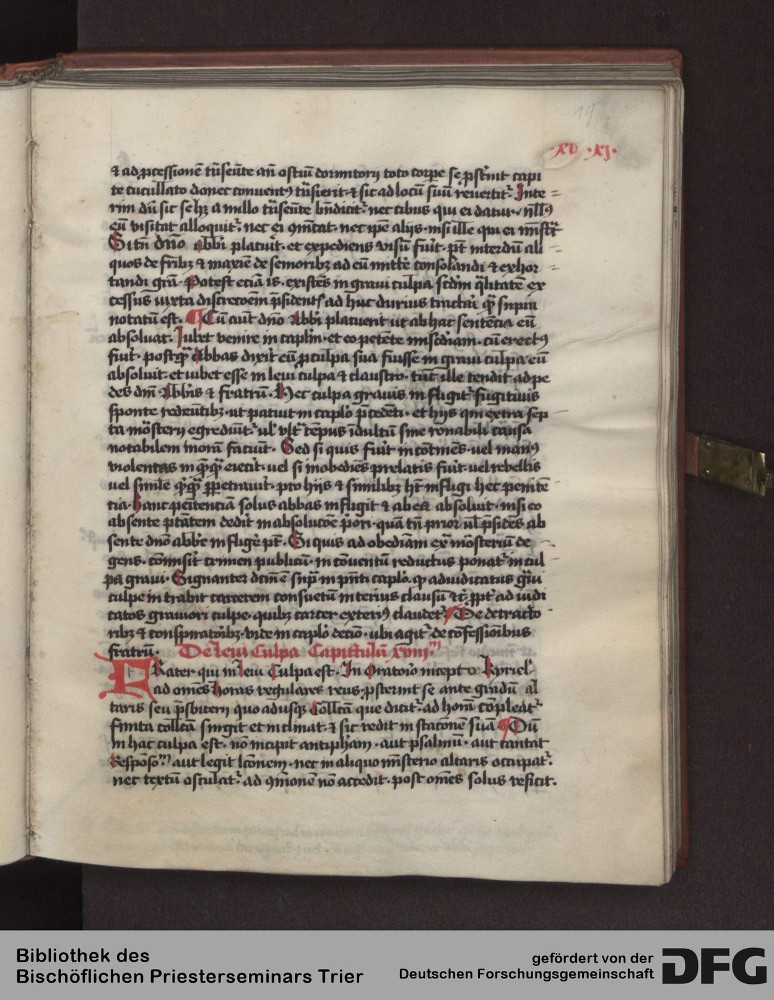 19
·xv· ·xj·
& ad ꝓcessionē tūseūte an̄ ostiū dormitorij toto corpe se ꝓsternit capi
te cucullato donec conventꝰ tūsierit · & sic ad locū suū revertit᷑ · Inte =
rim dū sic se hꝫ a nullo tūseūte bn̄dicit᷑ · nec cibus qui ei datur ·
eū visitat alloquit᷑ · nec ei · nec ip̄e alijs · nisi ille qui ei
Si tn̄ dn̄o abbī placuit᷑ · et expediens visū fuit᷑ · pt̄ interdū ali
quos de fr̄ibꝫ & maxīe de senioribꝫ ad eū mitte᷑ consolandi & exhor
tandi grā · Potest eciā is · existēs in gravi culpa scd̄m q̄litatē ex
cessus iuxta discrecōem p̄sident᷑ ad huc durius tractari qꝫ supra
notatū est · Cū aūt dn̄o Abbi placuerit ut ab hac sentēcia eū
absoluat · Iubet venire in caplm̄ · et eo petēte mīscd̄iam · cū erectꝰ
fuit᷑ · postqꝫ Abbas dixit eū ꝓ culpa sua fuisse in gravi culpa eū
absoluit · et iubet esse in levi culpa & claustro · tūc ille tendit ad pe
des dn̄i Abbīs & fratrū · Hec culpa gravis infligit᷑ fugitivis
sponte redeūtibꝫ · ut patuit in caplō p̄cedēti · et hijs qui extra sep
ta mōsterij egrediūt᷑ · ul̕ ult̕ tēpus idultū sine rōnabili causa
notabilem morā faciūt · Sed si quis fuit᷑ in · vel manꝰ
violentas in q̄qꝫ eiecit᷑ · vel si inobediēs prelatis fuit᷑ · vel rebellis
vel simile q̄qꝫ ꝑpetravit᷑ · pro hijs & similibꝫ hꝫ infligi hec penitē
cia · Hanc penitenciā solus abbas infligit & ab ea absoluit · nisi eo
absente p̄tatem dedit in absolucōe p̄ori · quā tn̄ prior ul̕ p̄sidēs ab
sente dn̄o abbe infligē᷑ pt̄ · Si quis ad obediam ex mōsterium de =
gens · cōmisit᷑ crimen publicū · in cōventū reductus ponat᷑ in cul
pa gravi · Signanter dcm̄ ē sup̄ in p̄nti caplō · qꝫ adiudicatus g̃vi
culpe intrabit carcerem consuetū interius clausū & ꝑpt᷑ ad iudi
catos graviori culpe · quibꝫ carcer exteriꝰ claudet᷑ De detracto
ribꝫ & conspiratoribꝫ · vide in caplō decīo · ubi agit᷑ de cōfessionibus
fratrū · De levi Culpa Capitulū xviij
FRater qui in levi Culpa est · In Oratoīo incepto Kyriel᷑
ad omēs horas regulares reus ꝓsternit se ante gradū al
taris seu p̄sbiterij quo adusqꝫ Collectā que dicit᷑ · ad horā cōpleat᷑
finita collectā surgit et inclinat · & sic redit in stacōnem suā Dū
in hac culpa est · nō incipit antiphām · aut psalmū · aut cantat
Respōsoī᷑ aut legit lcōnem · nec in aliquo mīsterio altaris occupat᷑
nec textū osculat᷑ · ad ꝯmōnem nō accedit · post omēs solus reficit ·
Bibliothek des
Bischöflichen Priesterseminars Trier
gefördert von der
Deutschen Forschungsgemeinschaft DFG